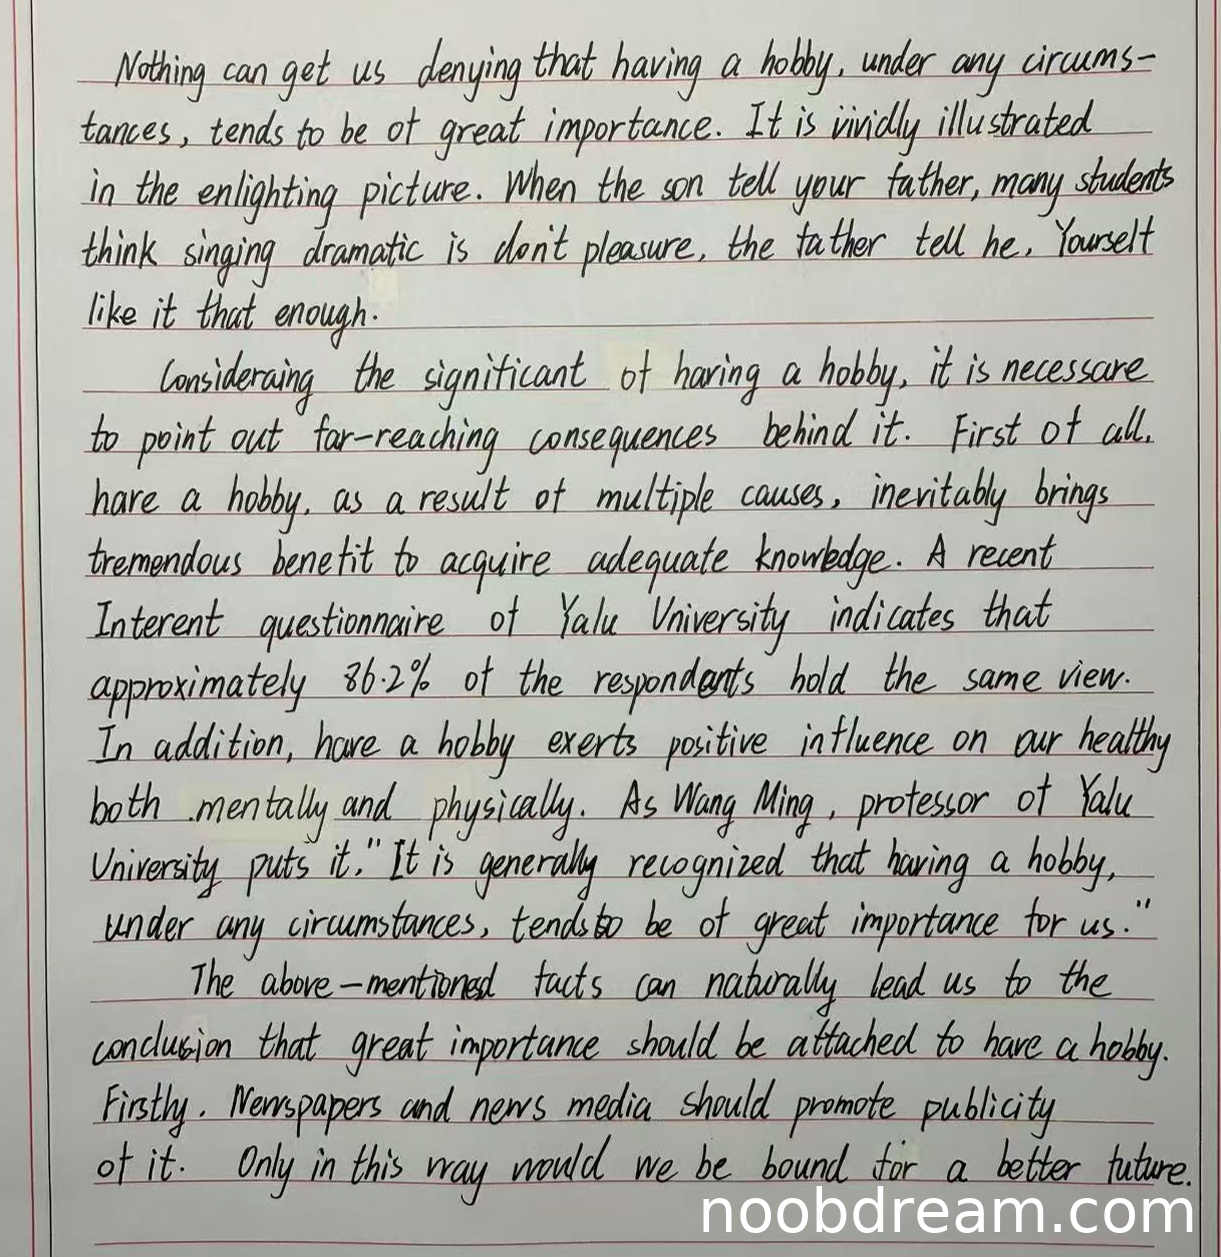 Nothing can get us denying that having a hobby, under any circums-
tances, tends to be of great importance. It is vividly illustrated
in the enlighting picture. When the son tell your father, many students
think singing dramatic is don't pleasure, the father tell he, Yourself
like it that enough.
Consideraing the significant of having a hobby, it is necessare
to point out far-reaching consequences behind it. First of all,
have a hobby, as a result of multiple causes, inevitably brings
tremendous benefit to acquire adequate knowledge. A recent
Interent questionnaire of Yalu University indicates that
approximately 86.2% of the respondents hold the same view.
In addition, have a hobby exerts positive influence on our healthy
both mentally and physically. As Wang Ming, professor of Yalu
University puts it, "It is generally recognized that having a hobby,
under any circumstances, tends to be of great importance for us."
The above-mentioned facts can naturally lead us to the
conclusion that great importance should be attached to have a hobby.
Firstly. Newspapers and news media should promote publicity
of it. Only in this way would we be bound for a better future.
noobdream.com